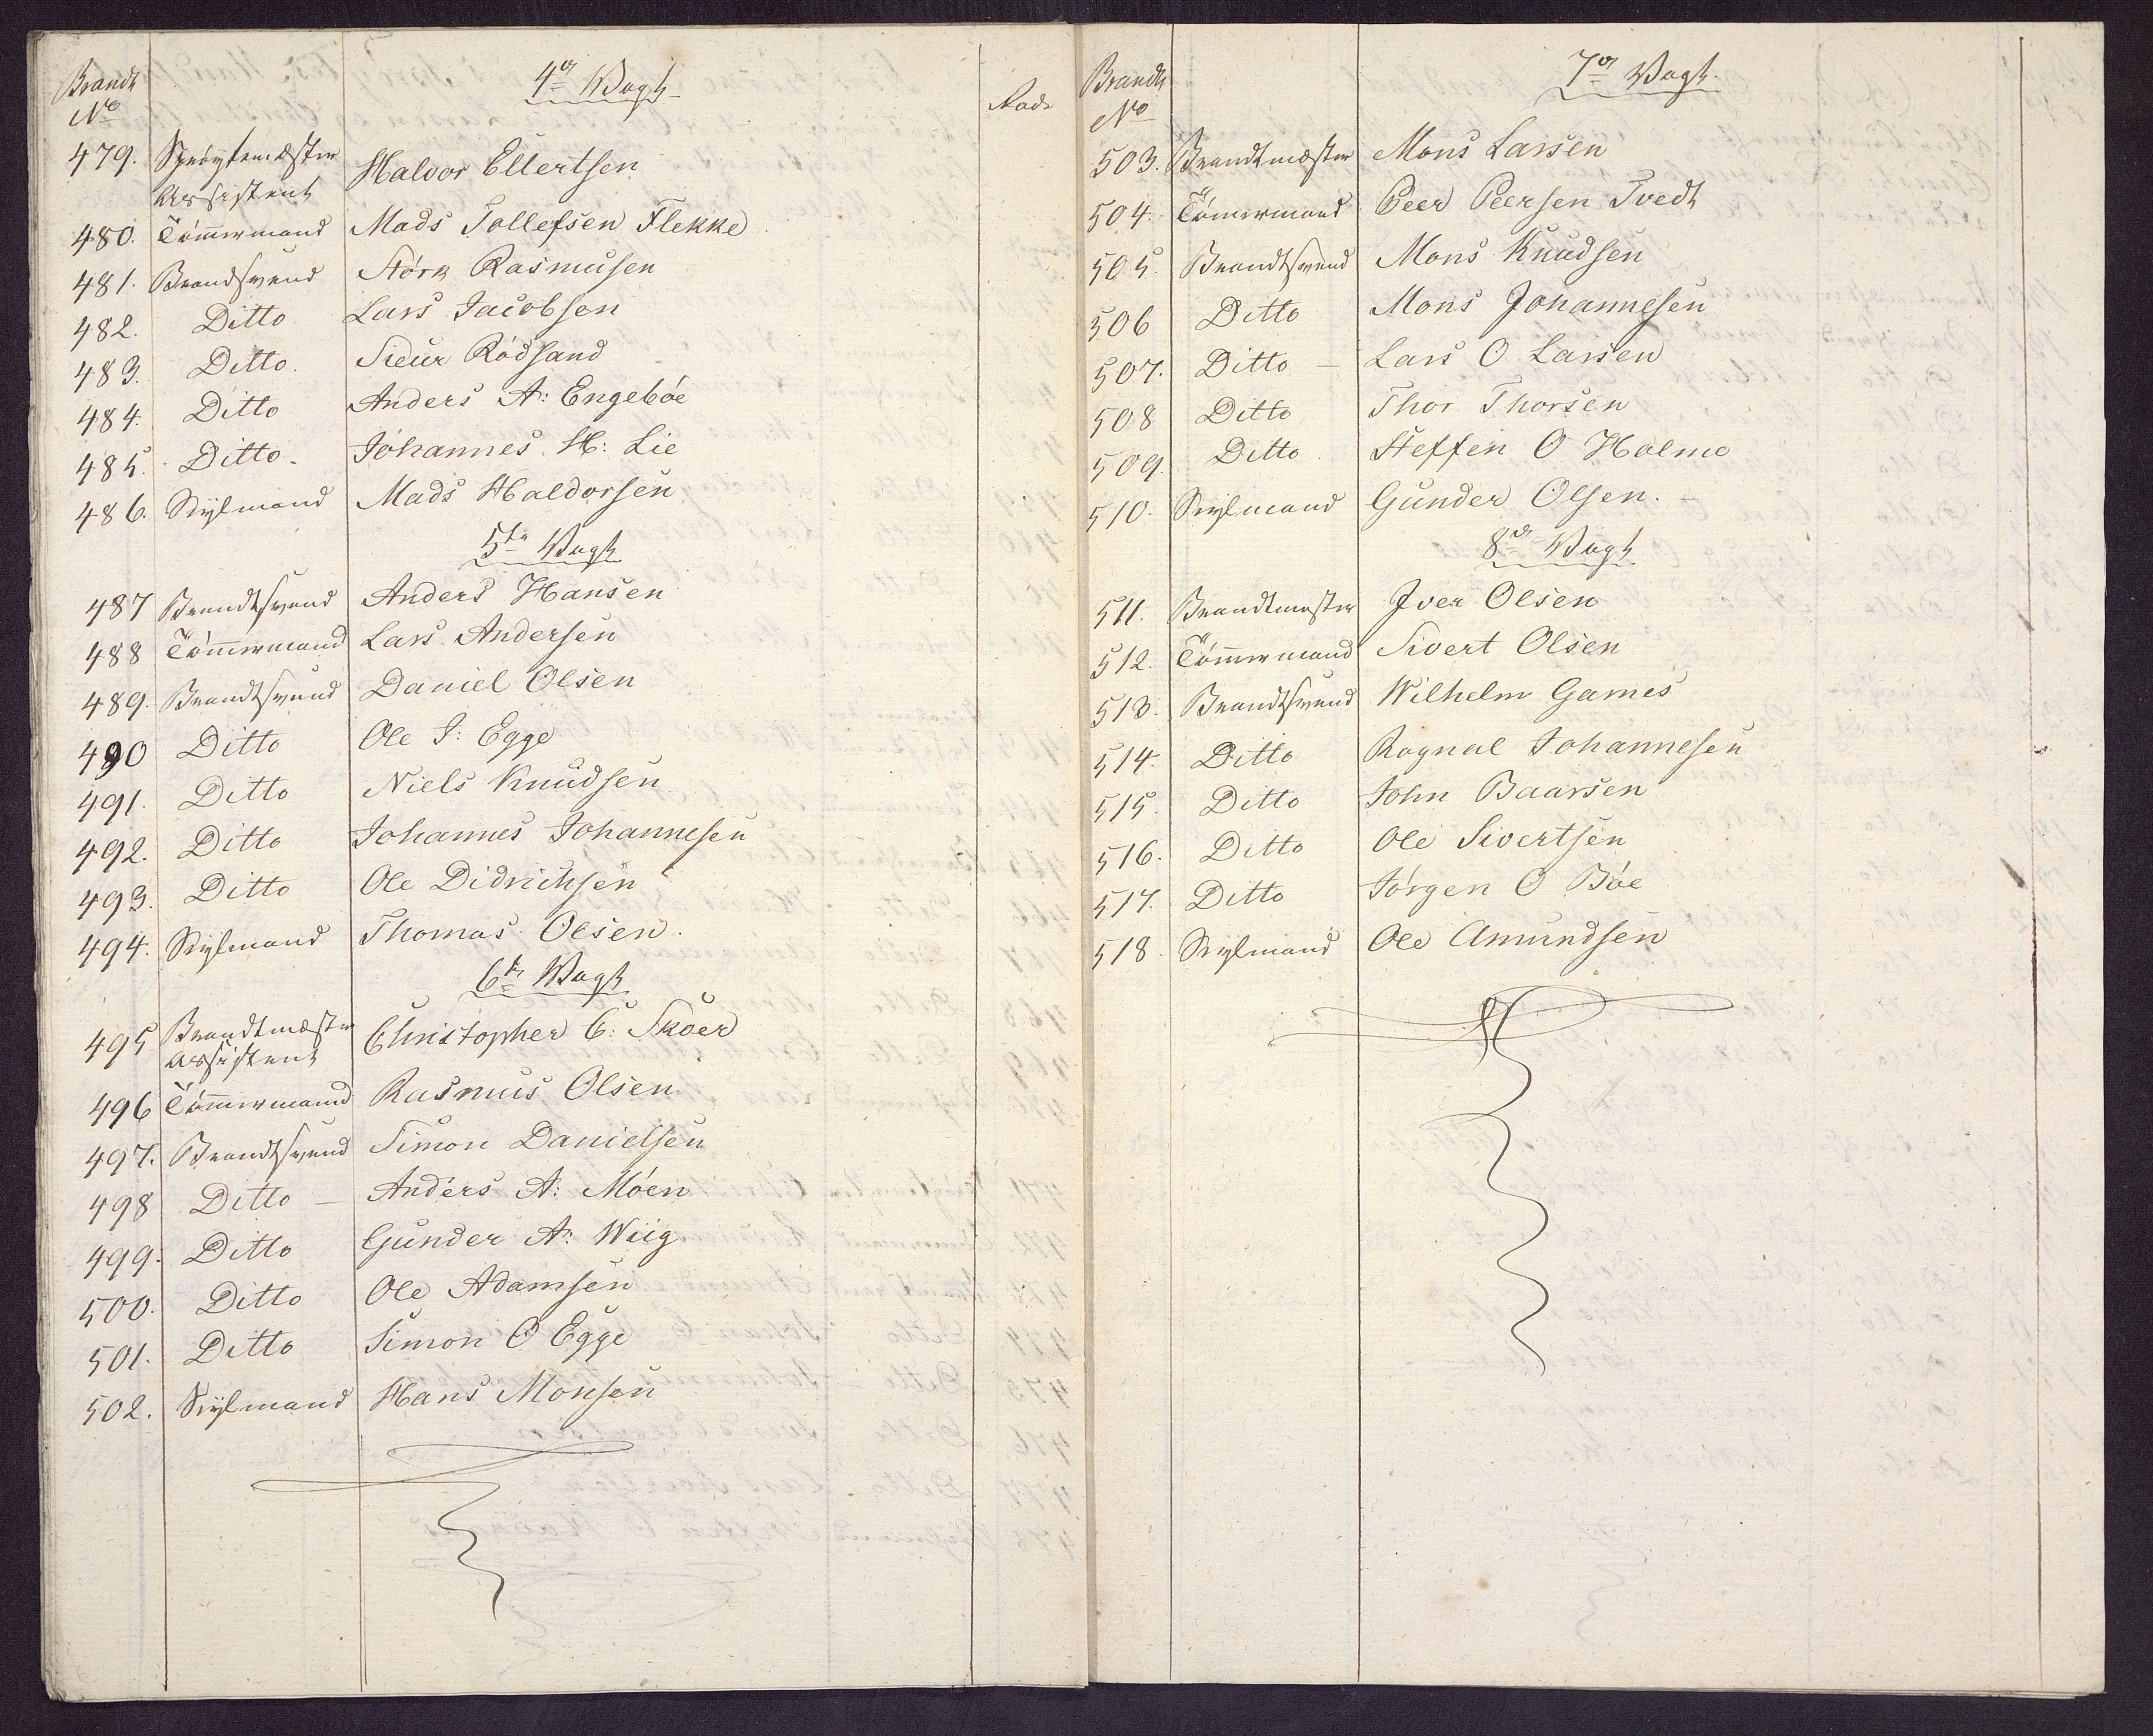 Brandt
No
4de Wagt
Rode
479. Sprøytemæster Assistent Halvor Ellertsen
480. Tømmermand Mads Tollefsen Flekke
481. Brandsvend Størk Rasmusen
482. Ditto Lars Jacobsen
483. Ditto Sieur Rødsand
484. Ditto Anders A: Engebøe
485. Ditto Johannes H: Lie
486. Skylmand Mads Haldorsen
5te Wagt
487 Brandtsvend Anders Hansen
488 Tømmermand Lars Andersen
489. Brandtsvend Daniel Olsen
490 Ditto Ole J: Egge
491. Ditto Niels Knudsen
492. Ditto Johannes Johannesen
493. Ditto Ole Didrichsen
494. Skylmand Thomas Olsen.
6te Wagt
495 Brandtmæster Assistent Christopher C: Skoer
496 Tømmermand Rasmus Olsen
497. Brandtsvend Simon Danielsen
498 Ditto – Anders A: Møen
499. Ditto Gunder A: Wiig
500. Ditto Ole Adamsen
501. Ditto Simon O Egge
502. Skylmand Hans Monsen
Brandt
No
7de Wagt.
503. Brandtmæster Mons Larsen
504. Tømermand Peer Peersen Tvedt
505. Brandtsvend Mons Knudsen
506 Ditto Mons Johannesen
507. Ditto – Lars O Larsen
508 Ditto Thor Thorsen
509. Ditto Steffen O Holme
510. Skylmand Gunder Olsen. –
8de Wagt
511. Brandtmester Iver Olsen
512. Tømmermand Sivert Olsen
513. Brandtsvend Wilhelm Games
514. Ditto Ragnal Johannesen
515. Ditto John Baarsen
516. Ditto Ole Sivertsen
517. Ditto Jørgen O Bøe
518. Skylmand Ole Amundsen